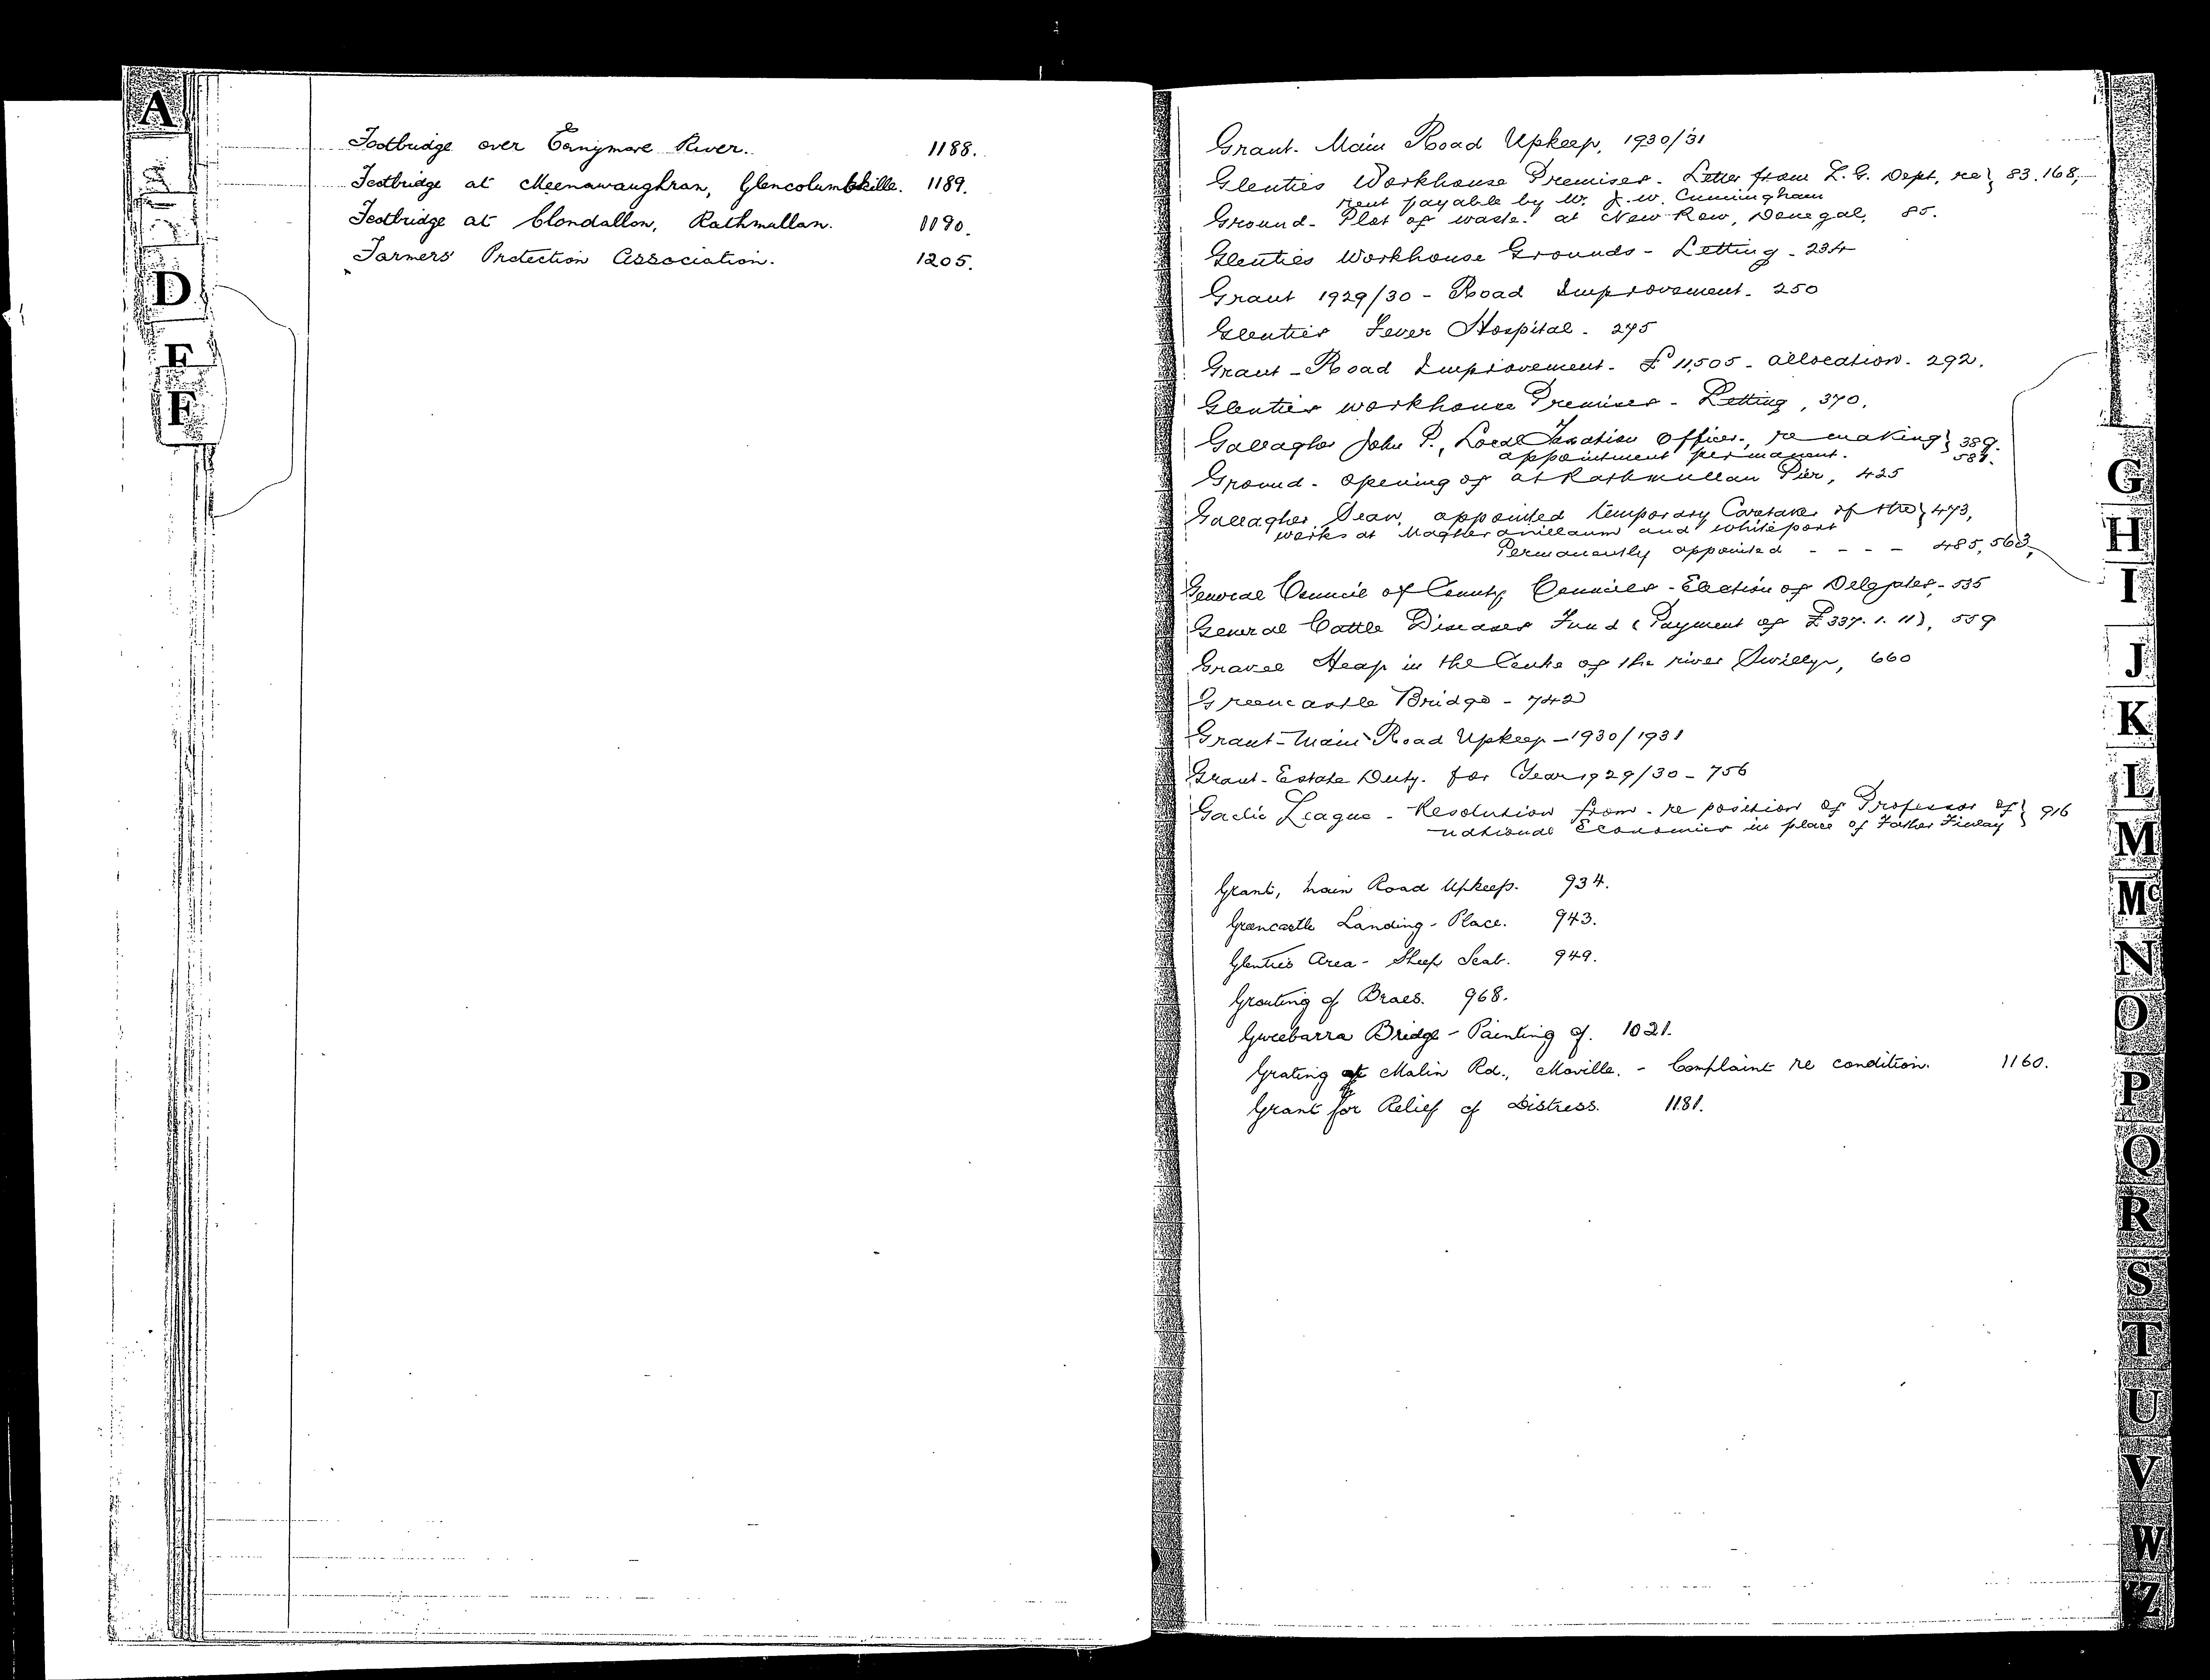 A
D
E
F
Footbridge over Eanymore River. 1188.
Footbridge at Meenawaughran, Glencolumbkille. 1189.
Footbridge at Clondallon, Rathmullan. 1190.
Farmers' Protection Association. 1205.
Grant. Main Road Upkeep, 1930/31
Glenties Workhouse Premises - Letter from L.G. Dept, re } 83. 168,
rent payable by W. J. W. Cunningham
Ground - Plot of waste at New Row, Donegal, 85.
Glenties Workhouse Grounds - Letting - 234
Grant 1929/30 - Road Improvement - 250
Glenties Fever Hospital - 275
Grant - Road Improvement - £11,505 - allocation - 292.
Glenties workhouse Premises - Letting, 370.
Gallagher John P., Local Taxation Officer, re making } 389.
appointment permanent. 587.
Ground - opening of at Rathmullan Pier, 425
Gallagher Sean, appointed temporary Caretaker of the } 473,
works at Magheranillaun and whiteport
Permanently appointed - - - - 485, 563,
General Council of County Councils - Election of Delegates, - 535
General Cattle Diseases Fund (Payment of £337. 1. 11), 559
Gravel Heap in the Centre of the river Swilly, 660
Greencastle Bridge - 742
Grant - Main Road Upkeep - 1930/1931
Grant - Estate Duty. for Year 1929/30 - 756
Gaelic League - Resolution from - re position of Professor of } 916
national Economics in place of Father Finlay
Grant, Main Road Upkeep. 934.
Greencastle Landing-Place. 943.
Glenties Area - Sheep Scab. 949.
Grouting of Braes. 968.
Gweebarra Bridge - Painting of. 1021.
Grating at Malin Rd., Moville. - Complaint re condition. 1160.
Grant for Relief of Distress. 1181.
G
H
I
J
K
L
M
Mc
N
O
P
Q
R
S
T
U
V
W
YZ